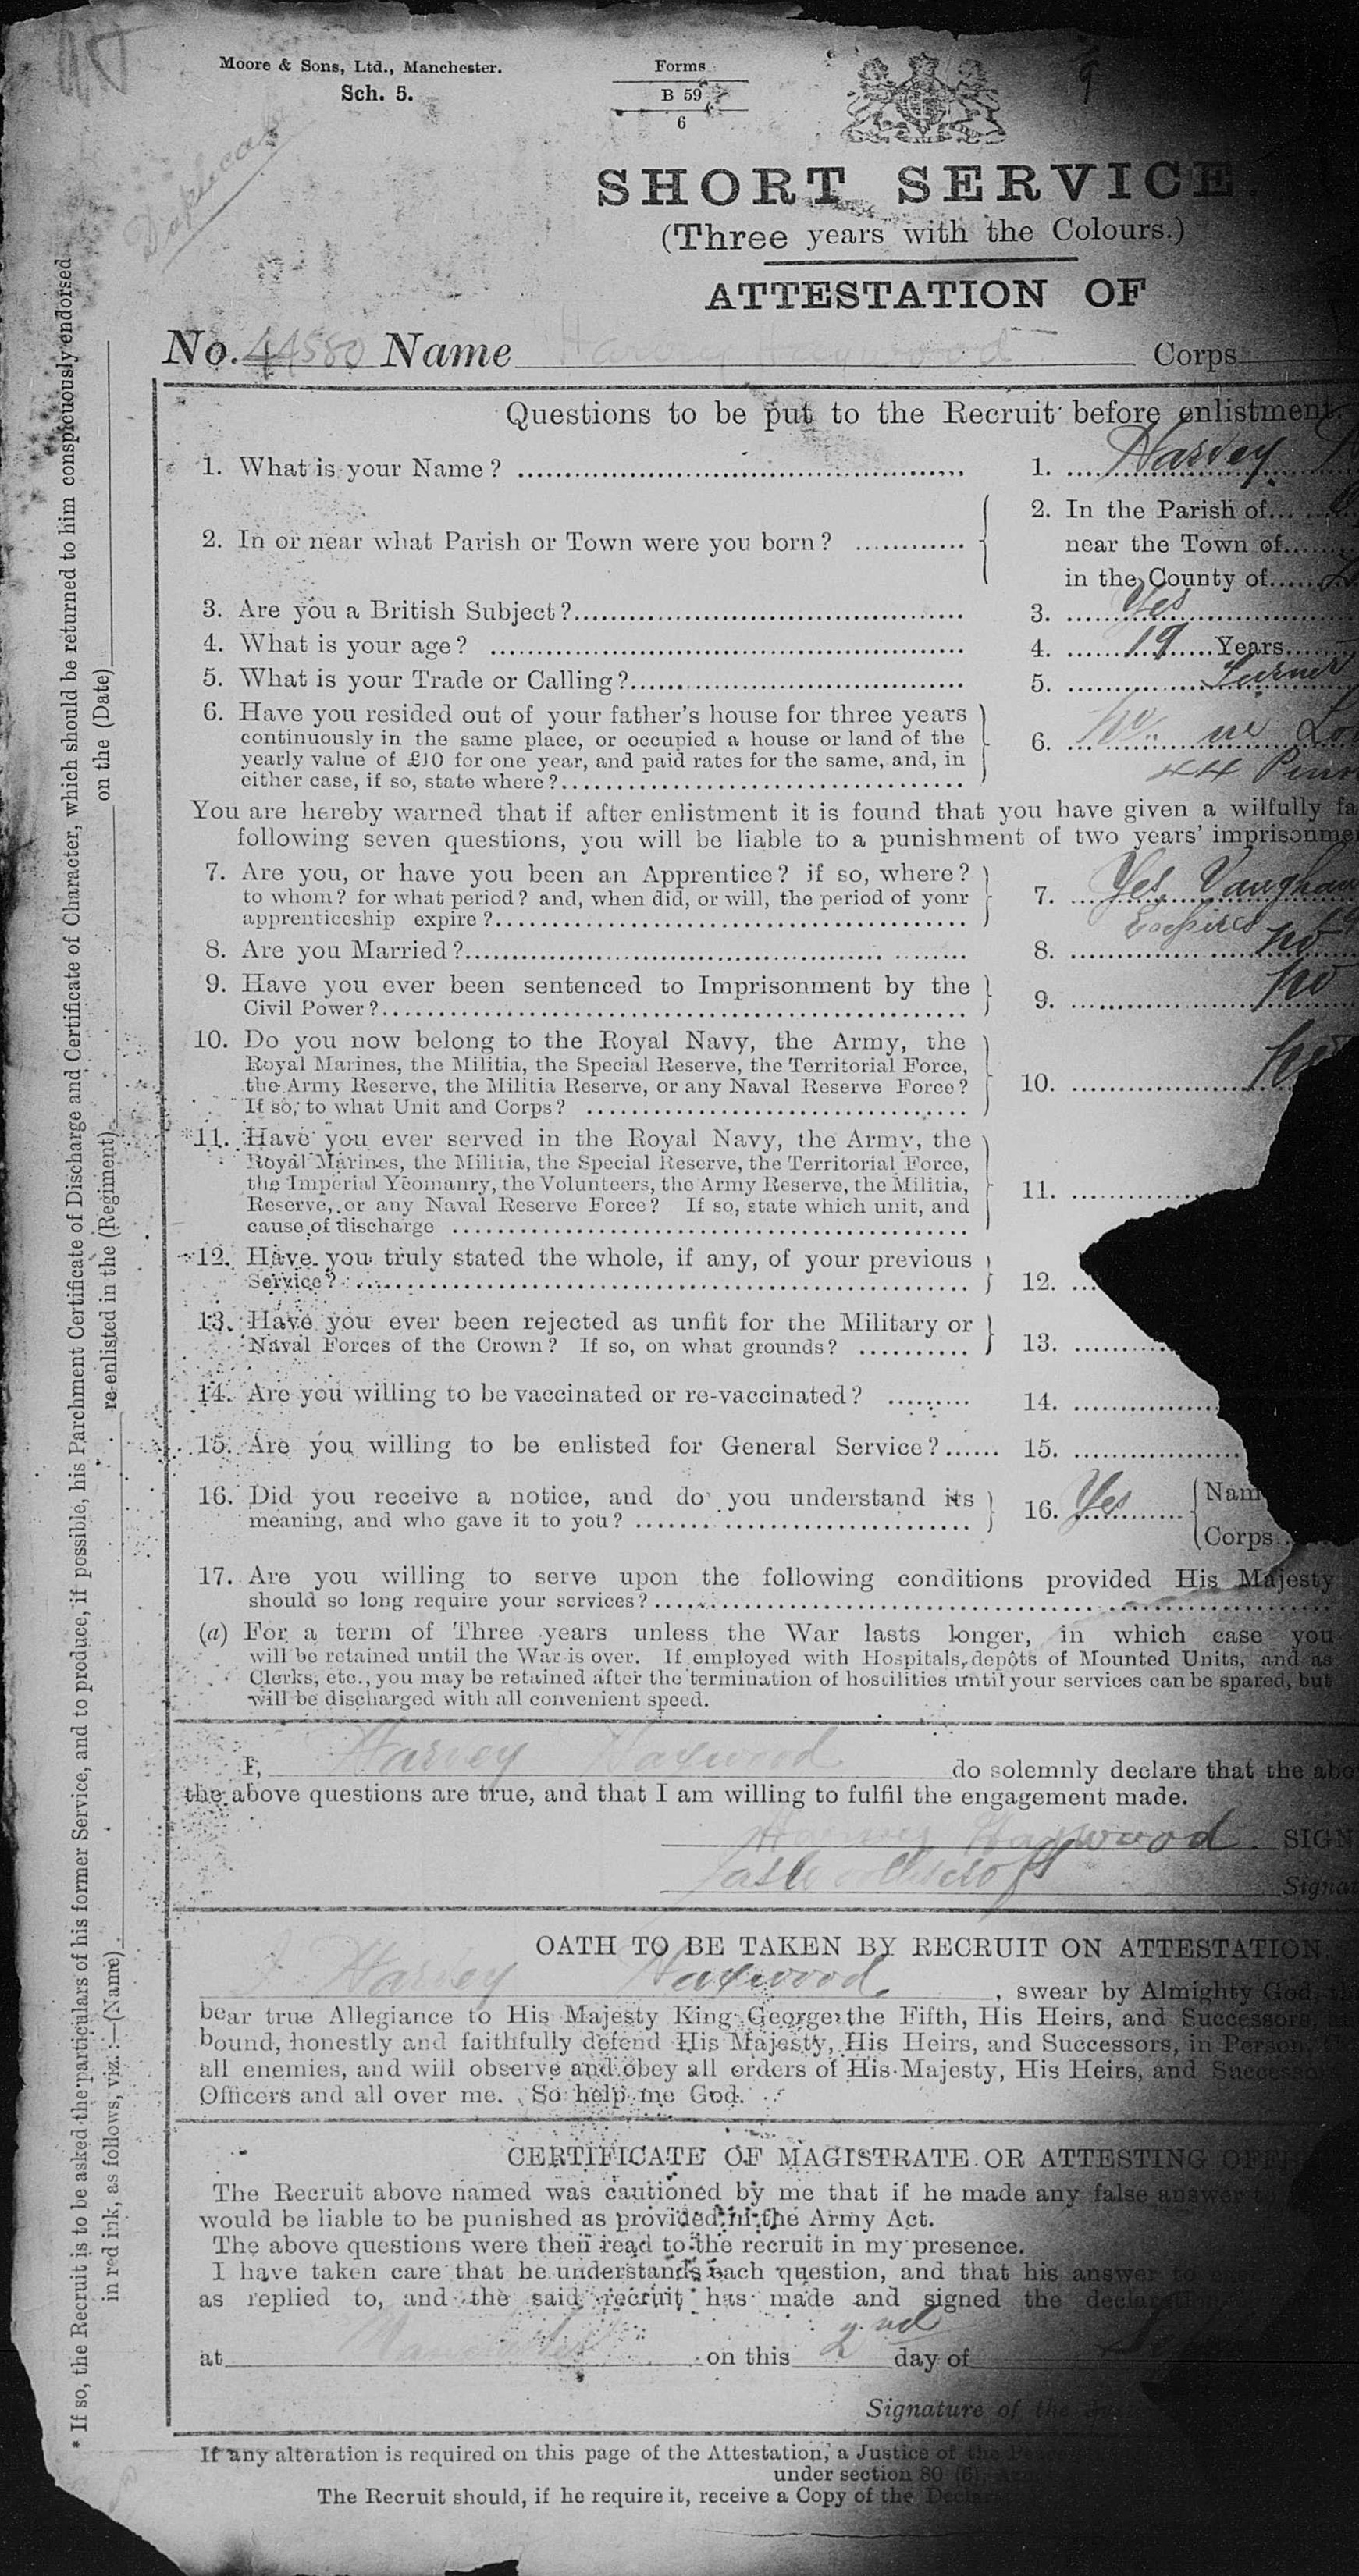 Moore & Sons, Ltd., Manchester.
Sch. 5.
Forms
B 59
6
Duplicate
SHORT SERVICE.
(Three years with the Colours.)
ATTESTATION OF
No. 44580 Name Harvey Haywood Corps
Questions to be put to the Recruit before enlistment.
1. What is your Name? 1. Harvey
2. In or near what Parish or Town were you born? 2. In the Parish of
near the Town of
in the County of
3. Are you a British Subject? 3. Yes
4. What is your age? 4. 19 Years
5. What is your Trade or Calling? 5. Turner
6. Have you resided out of your father's house for three years
continuously in the same place, or occupied a house or land of the
yearly value of £10 for one year, and paid rates for the same, and, in
either case, if so, state where? 6. No
44
You are hereby warned that if after enlistment it is found that you have given a wilfully fa
following seven questions, you will be liable to a punishment of two years' imprisonmen
7. Are you, or have you been an Apprentice? if so, where?
to whom? for what period? and, when did, or will, the period of your
apprenticeship expire? 7. Yes Vaughan
Expires
8. Are you Married? 8. No
9. Have you ever been sentenced to Imprisonment by the
Civil Power? 9. No
10. Do you now belong to the Royal Navy, the Army, the
Royal Marines, the Militia, the Special Reserve, the Territorial Force,
the Army Reserve, the Militia Reserve, or any Naval Reserve Force?
If so, to what Unit and Corps? 10. No
*11. Have you ever served in the Royal Navy, the Army, the
Royal Marines, the Militia, the Special Reserve, the Territorial Force,
the Imperial Yeomanry, the Volunteers, the Army Reserve, the Militia,
Reserve, or any Naval Reserve Force? If so, state which unit, and
cause of discharge 11.
12. Have you truly stated the whole, if any, of your previous
Service? 12.
13. Have you ever been rejected as unfit for the Military or
Naval Forces of the Crown? If so, on what grounds? 13.
14. Are you willing to be vaccinated or re-vaccinated? 14.
15. Are you willing to be enlisted for General Service? 15.
16. Did you receive a notice, and do you understand its
meaning, and who gave it to you? 16. Yes { Nam
Corps
17. Are you willing to serve upon the following conditions provided His Majesty
should so long require your services?
(a) For a term of Three years unless the War lasts longer, in which case you
will be retained until the War is over. If employed with Hospitals, depôts of Mounted Units, and as
Clerks, etc., you may be retained after the termination of hostilities until your services can be spared, but
will be discharged with all convenient speed.
I, Harvey Haywood do solemnly declare that the abo
the above questions are true, and that I am willing to fulfil the engagement made.
Harvey Haywood. SIGN
Signat
OATH TO BE TAKEN BY RECRUIT ON ATTESTATION.
I Harvey Haywood, swear by Almighty God,
bear true Allegiance to His Majesty King George the Fifth, His Heirs, and Successors,
bound, honestly and faithfully defend His Majesty, His Heirs, and Successors, in Person,
all enemies, and will observe and obey all orders of His Majesty, His Heirs, and Successo
Officers and all over me. So help me God.
CERTIFICATE OF MAGISTRATE OR ATTESTING OFFI
The Recruit above named was cautioned by me that if he made any false answer
would be liable to be punished as provided in the Army Act.
The above questions were then read to the recruit in my presence.
I have taken care that he understands each question, and that his answer to
as replied to, and the said recruit has made and signed the declaration
at Manchester on this 2nd day of
Signature of the
If any alteration is required on this page of the Attestation, a Justice of the Peace
under section 80 (6), Army
The Recruit should, if he require it, receive a Copy of the Declar
* If so, the Recruit is to be asked the particulars of his former Service, and to produce, if possible, his Parchment Certificate of Discharge and Certificate of Character, which should be returned to him conspicuously endorsed
in red ink, as follows, viz.:—(Name) re-enlisted in the (Regiment) on the (Date)